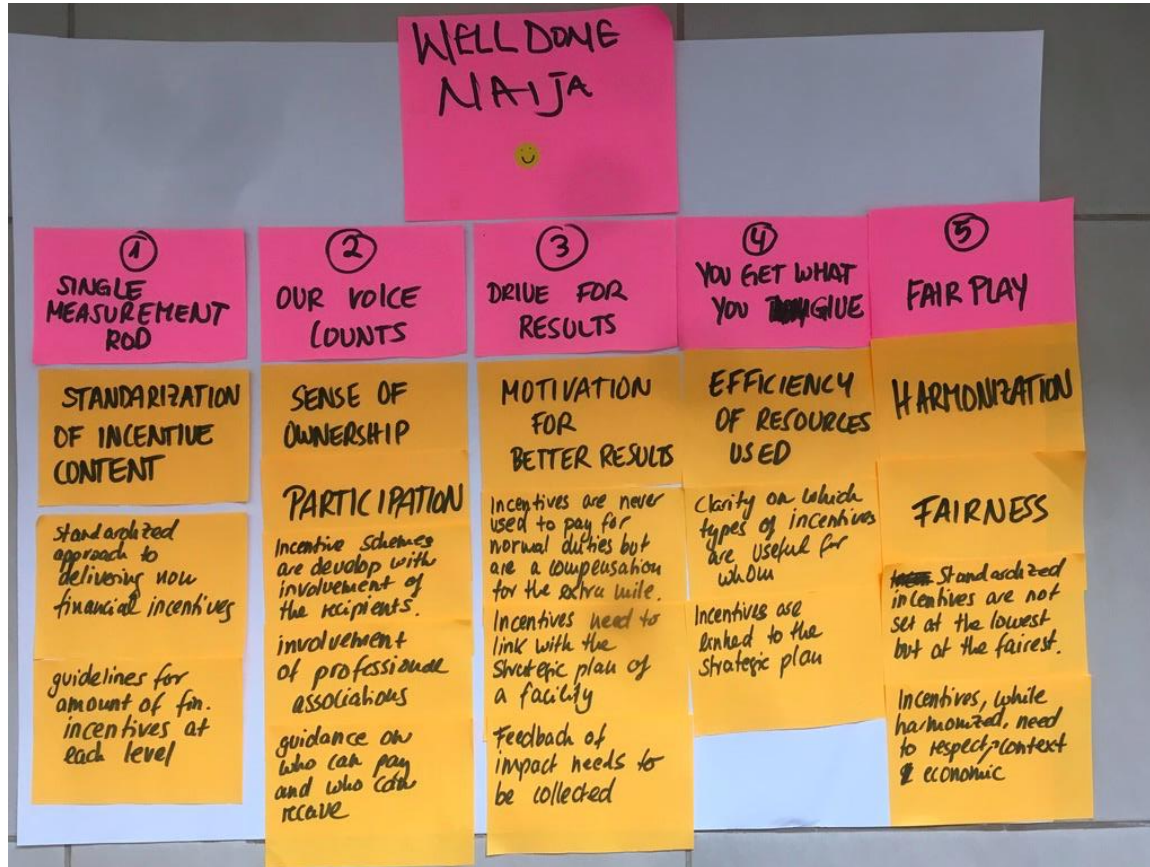 WELL DONE
NAIJA
1
SINGLE
MEASUREMENT
ROD
STANDARIZATION
OF INCENTIVE
CONTENT
Standardized
approach to
delivering non
financial incentives
guidelines for
amount of fin.
incentives at
each level
2
OUR VOICE
COUNTS
SENSE OF
OWNERSHIP
PARTICIPATION
Incentive schemes
are develop with
involvement of
the recipients.
involvement
of professional
associations
guidance on
who can pay
and who can
receve
3
DRIVE FOR
RESULTS
MOTIVATION
FOR
BETTER RESULTS
Incentives are never
used to pay for
normal duties but
are a compensation
for the extra mile.
Incentives need to
link with the
Strategic plan of
a facility
Feedback of
impact needs to
be collected
4
YOU GET WHAT
YOU GIVE
EFFICIENCY
OF RESOURCES
USED
Clarity on which
types of incentives
are useful for
whom
Incentives are
linked to the
strategic plan
5
FAIR PLAY
HARMONIZATION
FAIRNESS
Standardized
incentives are not
set at the lowest
but at the fairest.
Incentives, while
harmonized, need
to respect context
& economic